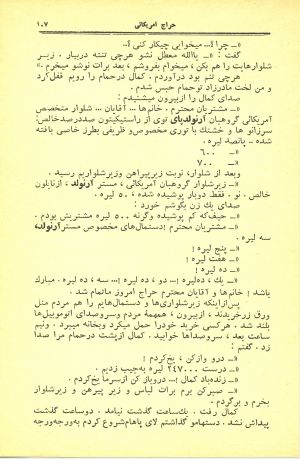 حراج امریکائی ۱۰۷
«ـ چرا؟... میخوابی چیکار کنی؟...
گفت: «ـ یااله معطل نشو هرچی تنته دربیار. زیر
شلوارهایت را هم بکن، میخوام بفروشم، بعد برات نوشو میخرم.»
هرچی تنم بود درآوردم. کمال درحمام را رویم قفل کرد
و من لخت مادرزاد توحمام حبس شدم.
صدای کمال را ازبیرون میشنیدم:
«ـ مشتریان محترم. خانم‌ها ... آقایان ... شلوار متخصص
آمریکائی گروهبان آرنولد بای توی از راستیکیتون صددرصد خالص:
سرزانو ها و خشتک با توری مخصوص و ظریفی بطرز خاصی بافته
شده ـ پانصد لیره.
«ـ ۶۰۰
«ـ ۷۰۰
وبعد از شلوار، نوبت زیرپیراهن وزیرشلواریم رسید.
«ـ زیرشلوار گروهبان آمریکائی، مستر آرنولد، ازنایلون
خالص. نو. فقط دوبار پوشیده شده، ۵۰ لیره.
صدای یک زن بگوشم خورد:
«ـ حیف که کم پوشیده وگرنه ۵۰۰ لیره مشتریش بودم.
«ـ مشتریان محترم! دستمال‌های مخصوص مستر آرنولد،
سه لیره.
«ـ پنج لیره!
«ـ هفت لیره!
«ـ ده لیره!
«ـ یک، ده لیره! ... دو، ده لیره! ... سه، ده لیره. مبارک
باشد! خانم‌ها و آقایان محترم حراج امروز ماتمام شد.
پس ازاینکه زیرشلواری‌ها و دستمال‌هایم را هم مردم مثل
ورق زرخریدند، ازبیرون، همهمهٔ مردم وسروصدای اتوموبیل‌ها
بلند شد. هرکسی خرید خودرا حمل میکرد وبخانه میبرد. ونیم
ساعت بعد، سروصداها خوابید. کمال ازپشت درحمام مرا صدا
زد، گفتم:
«ـ درو وازکن، یخ کردم!
«ـ درست ۲۴۷۰۰۰ لیره به جیب زدیم.
«ـ زنده‌باد کمال! ... دروباز کن ازسرما یخ کردم.
«ـ صبرکن برم برات لباس و زیر پیرهن و زیرشلوار
بخرم و برگردم.
کمال رفت. یک ساعت گذشت نیامد. دوساعت گذشت
پیداش نشد. دستهامو گذاشتم لای پاهام شروع کردم به ورجه ورجه